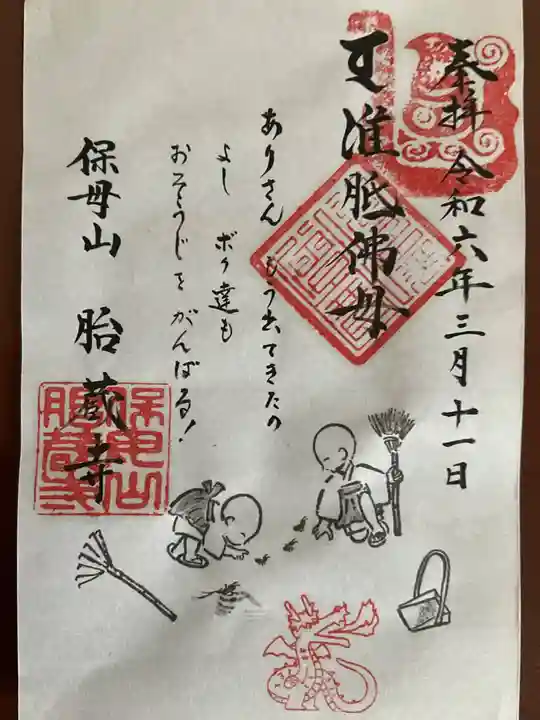 奉拝 令和六年三月十一日
准胝佛母
ありさん もう出てきたの
よし ボク達も
おそうじをがんばる!
保母山 胎蔵寺